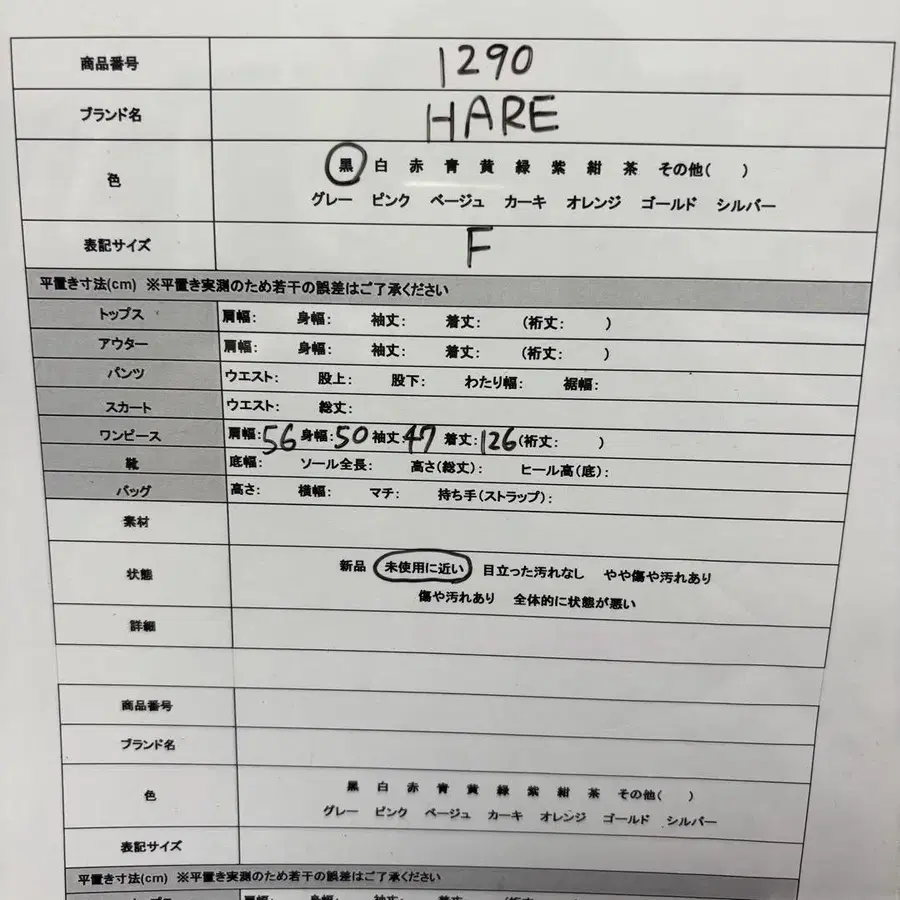 商品番号 1290
ブランド名 HARE
色 黒 白 赤 青 黄 緑 紫 紺 茶 その他( )
グレー ピンク ベージュ カーキ オレンジ ゴールド シルバー
表記サイズ F
平置き寸法(cm) ※平置き実測のため若干の誤差はご了承ください
トップス 肩幅: 身幅: 袖丈: 着丈: (裄丈: )
アウター 肩幅: 身幅: 袖丈: 着丈: (裄丈: )
パンツ ウエスト: 股上: 股下: わたり幅: 裾幅:
スカート ウエスト: 総丈:
ワンピース 肩幅:56 身幅:50 袖丈:47 着丈:126 (裄丈: )
靴 底幅: ソール全長: 高さ(総丈): ヒール高(底):
バッグ 高さ: 横幅: マチ: 持ち手(ストラップ):
素材
状態 新品 未使用に近い 目立った汚れなし やや傷や汚れあり
傷や汚れあり 全体的に状態が悪い
詳細
商品番号
ブランド名
色 黒 白 赤 青 黄 緑 紫 紺 茶 その他( )
グレー ピンク ベージュ カーキ オレンジ ゴールド シルバー
表記サイズ
平置き寸法(cm) ※平置き実測のため若干の誤差はご了承ください